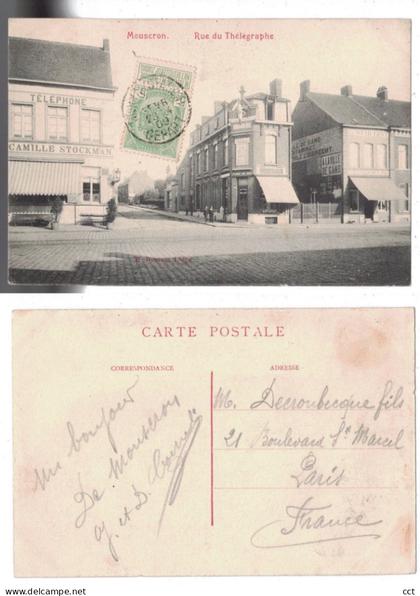 Mouscron. Rue du Thélégraphe
TÉLÉPHONE
CAMILLE STOCKMAN
DE GAND
A LA VILLE
DE GAND
CARTE POSTALE
CORRESPONDANCE
ADRESSE
Un bonjour
De Mouscron
et D.
M. Decroubecque fils
21 Boulevard St Marcel
Paris
France
cct